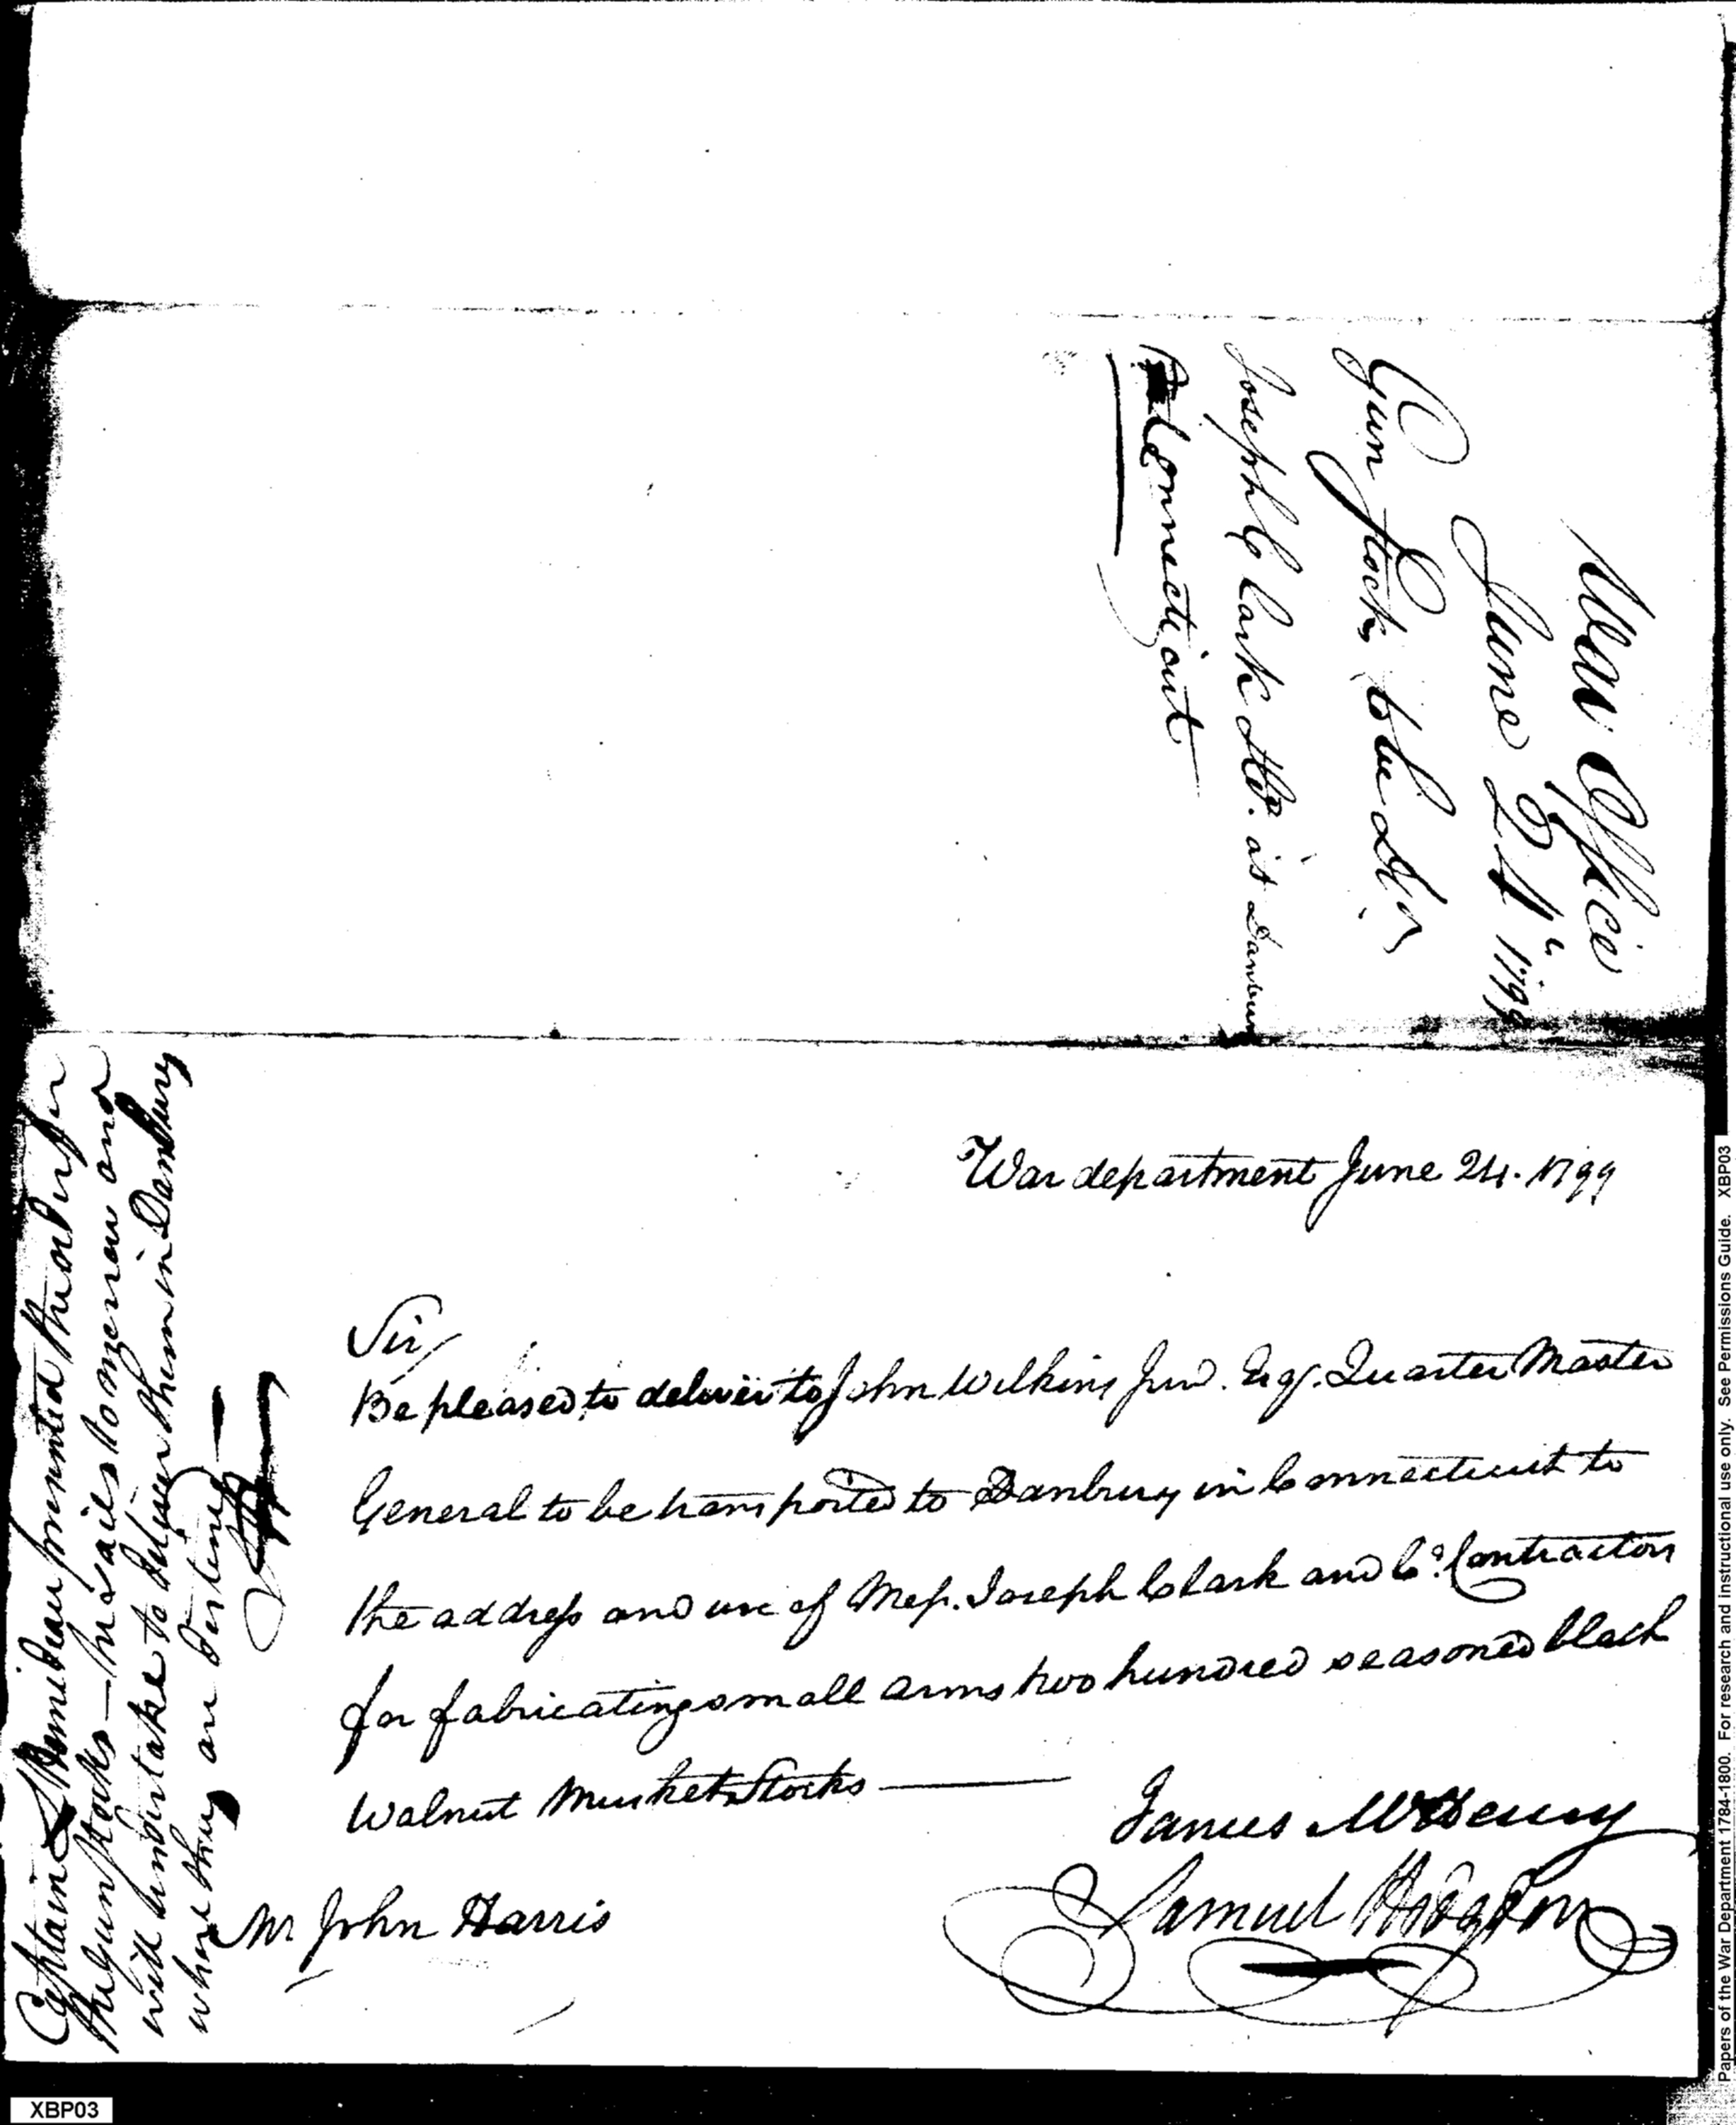 War Office
June 24th 1799
Gun Stocks to be Dd
Joseph Clark & Co. at Danbury
Connecticut
War department June 24. 1799
Sir,
Be pleased to deliver to John Wilkins Junr. Esqr. Quarter Master
General to be transported to Danbury in Connecticut to
the address and use of Mess. Joseph Clark and Co. Contractors
for fabricating small arms two hundred seasoned black
Walnut Musket Stocks
James McHenry
Samuel Hodgdon
Mr John Harris
Captain presented the order for
the gun stocks — he sails tomorrow and
will undertake to deliver them in Danbury
where they are destined —
SH
Papers of the War Department 1784-1800. For research and instructional use only. See Permissions Guide. XBP03
XBP03